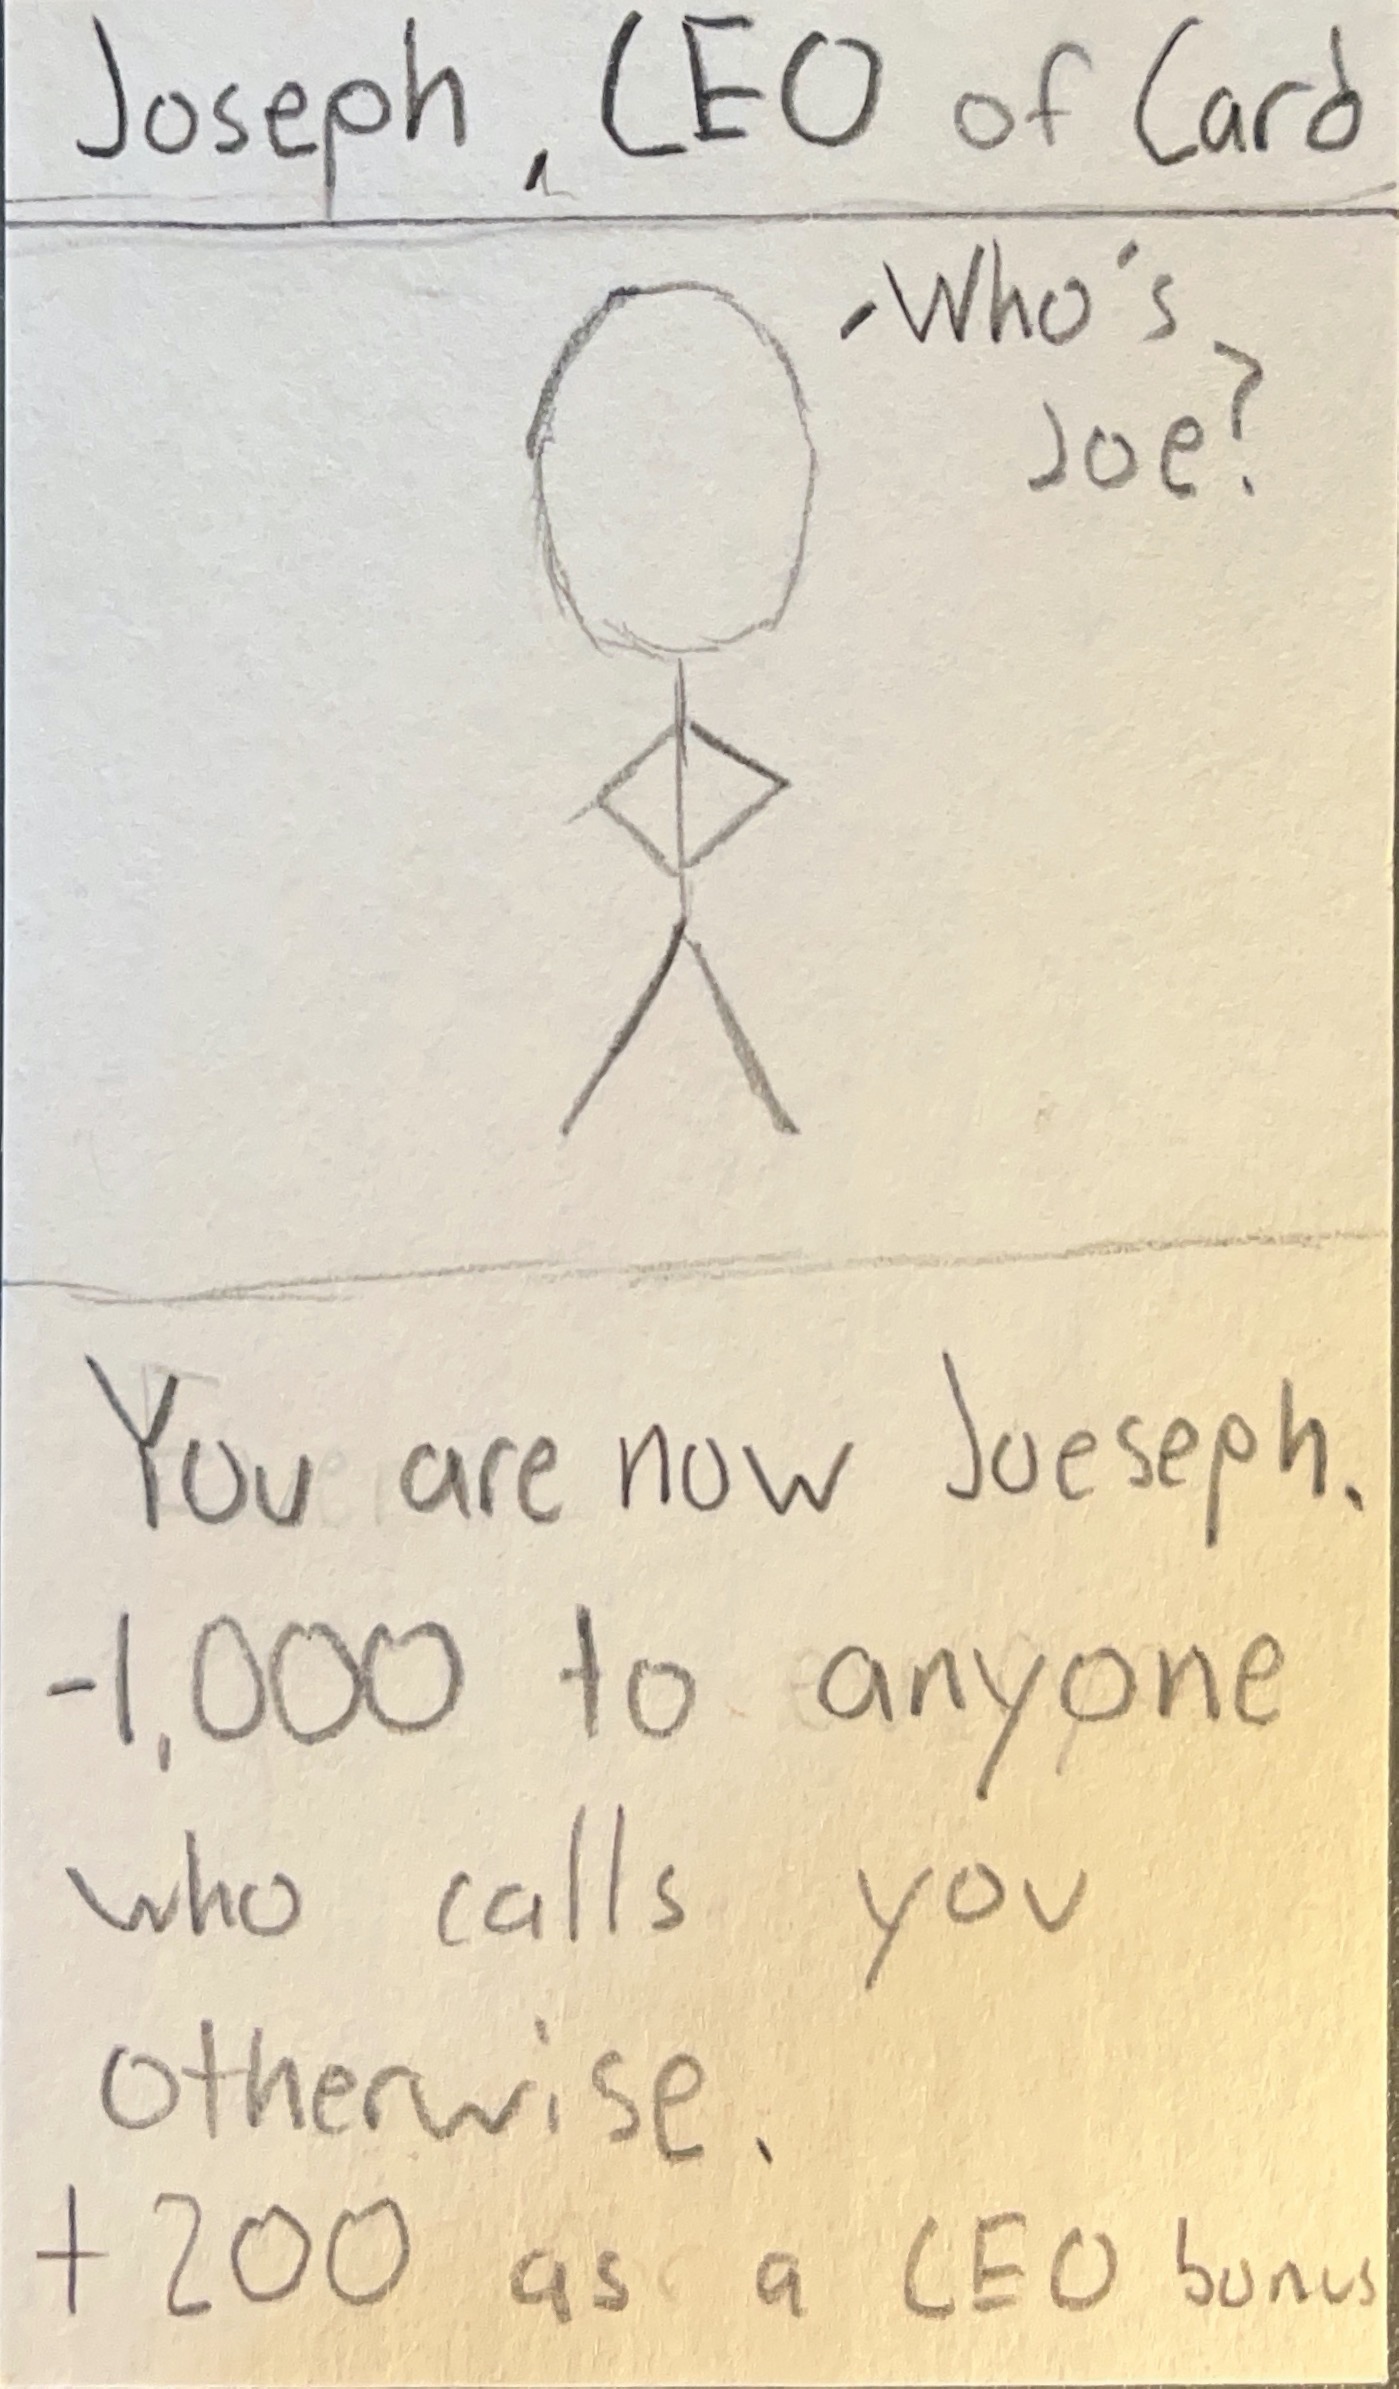 Joseph, CEO of Card
-Who's
Joe?
You are now Joeseph.
-1,000 to anyone
who calls you
otherwise.
+200 as a CEO bonus